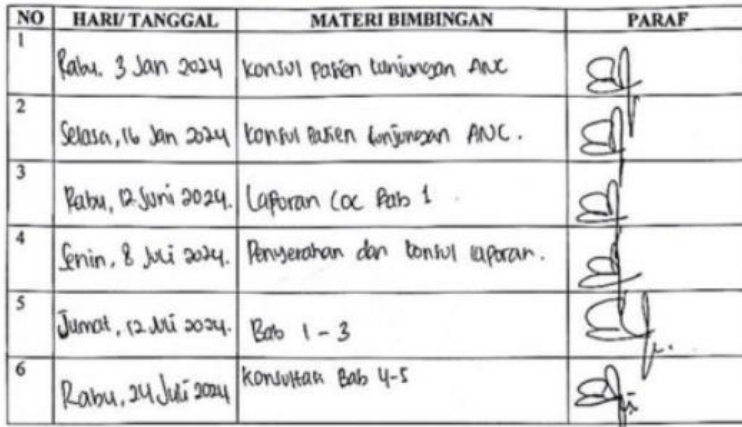 NO HARI/ TANGGAL MATERI BIMBINGAN PARAF
1 Rabu, 3 Jan 2024 Konsul pasien kunjungan ANC
2 Selasa, 16 Jan 2024 Konsul Pasien kunjungan ANC.
3 Rabu, 12 Juni 2024. Laporan COC Bab 1
4 Senin, 8 Juli 2024. Penyerahan dan konsul laporan.
5 Jumat, 12 Juli 2024. Bab 1 - 3
6 Rabu, 24 Juli 2024 Konsultasi Bab 4-5